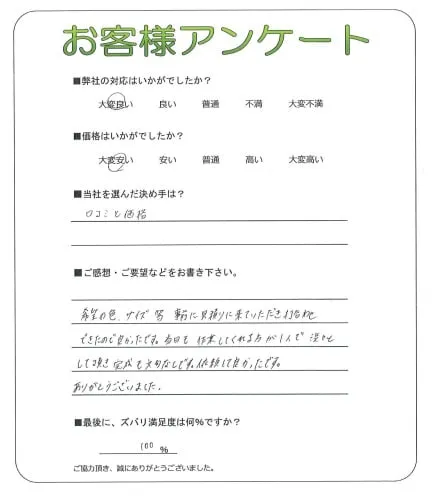 お客様アンケート
■弊社の対応はいかがでしたか?
大変良い 良い 普通 不満 大変不満
■価格はいかがでしたか?
大変安い 安い 普通 高い 大変高い
■当社を選んだ決め手は?
口コミと価格
■ご感想・ご要望などをお書き下さい。
希望の色、サイズ等 事前に見積りに来ていただき
できたので良かったです。当日も作業してくれる方が1人で
して頂き完成も文句なしです。依頼して良かったです。
ありがとうございました。
■最後に、ズバリ満足度は何%ですか?
100 %
ご協力頂き、誠にありがとうございました。